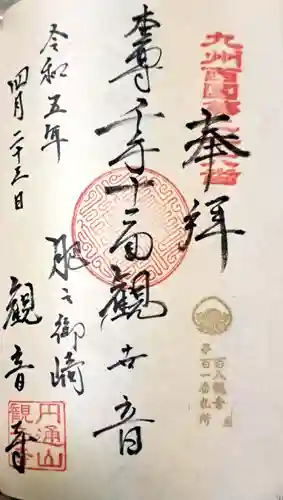 奉拝
本尊千手十一面観世音
肥之御崎
観音寺
令和五年
四月二十三日
百八観音
第百一番札所
円通山
観音寺